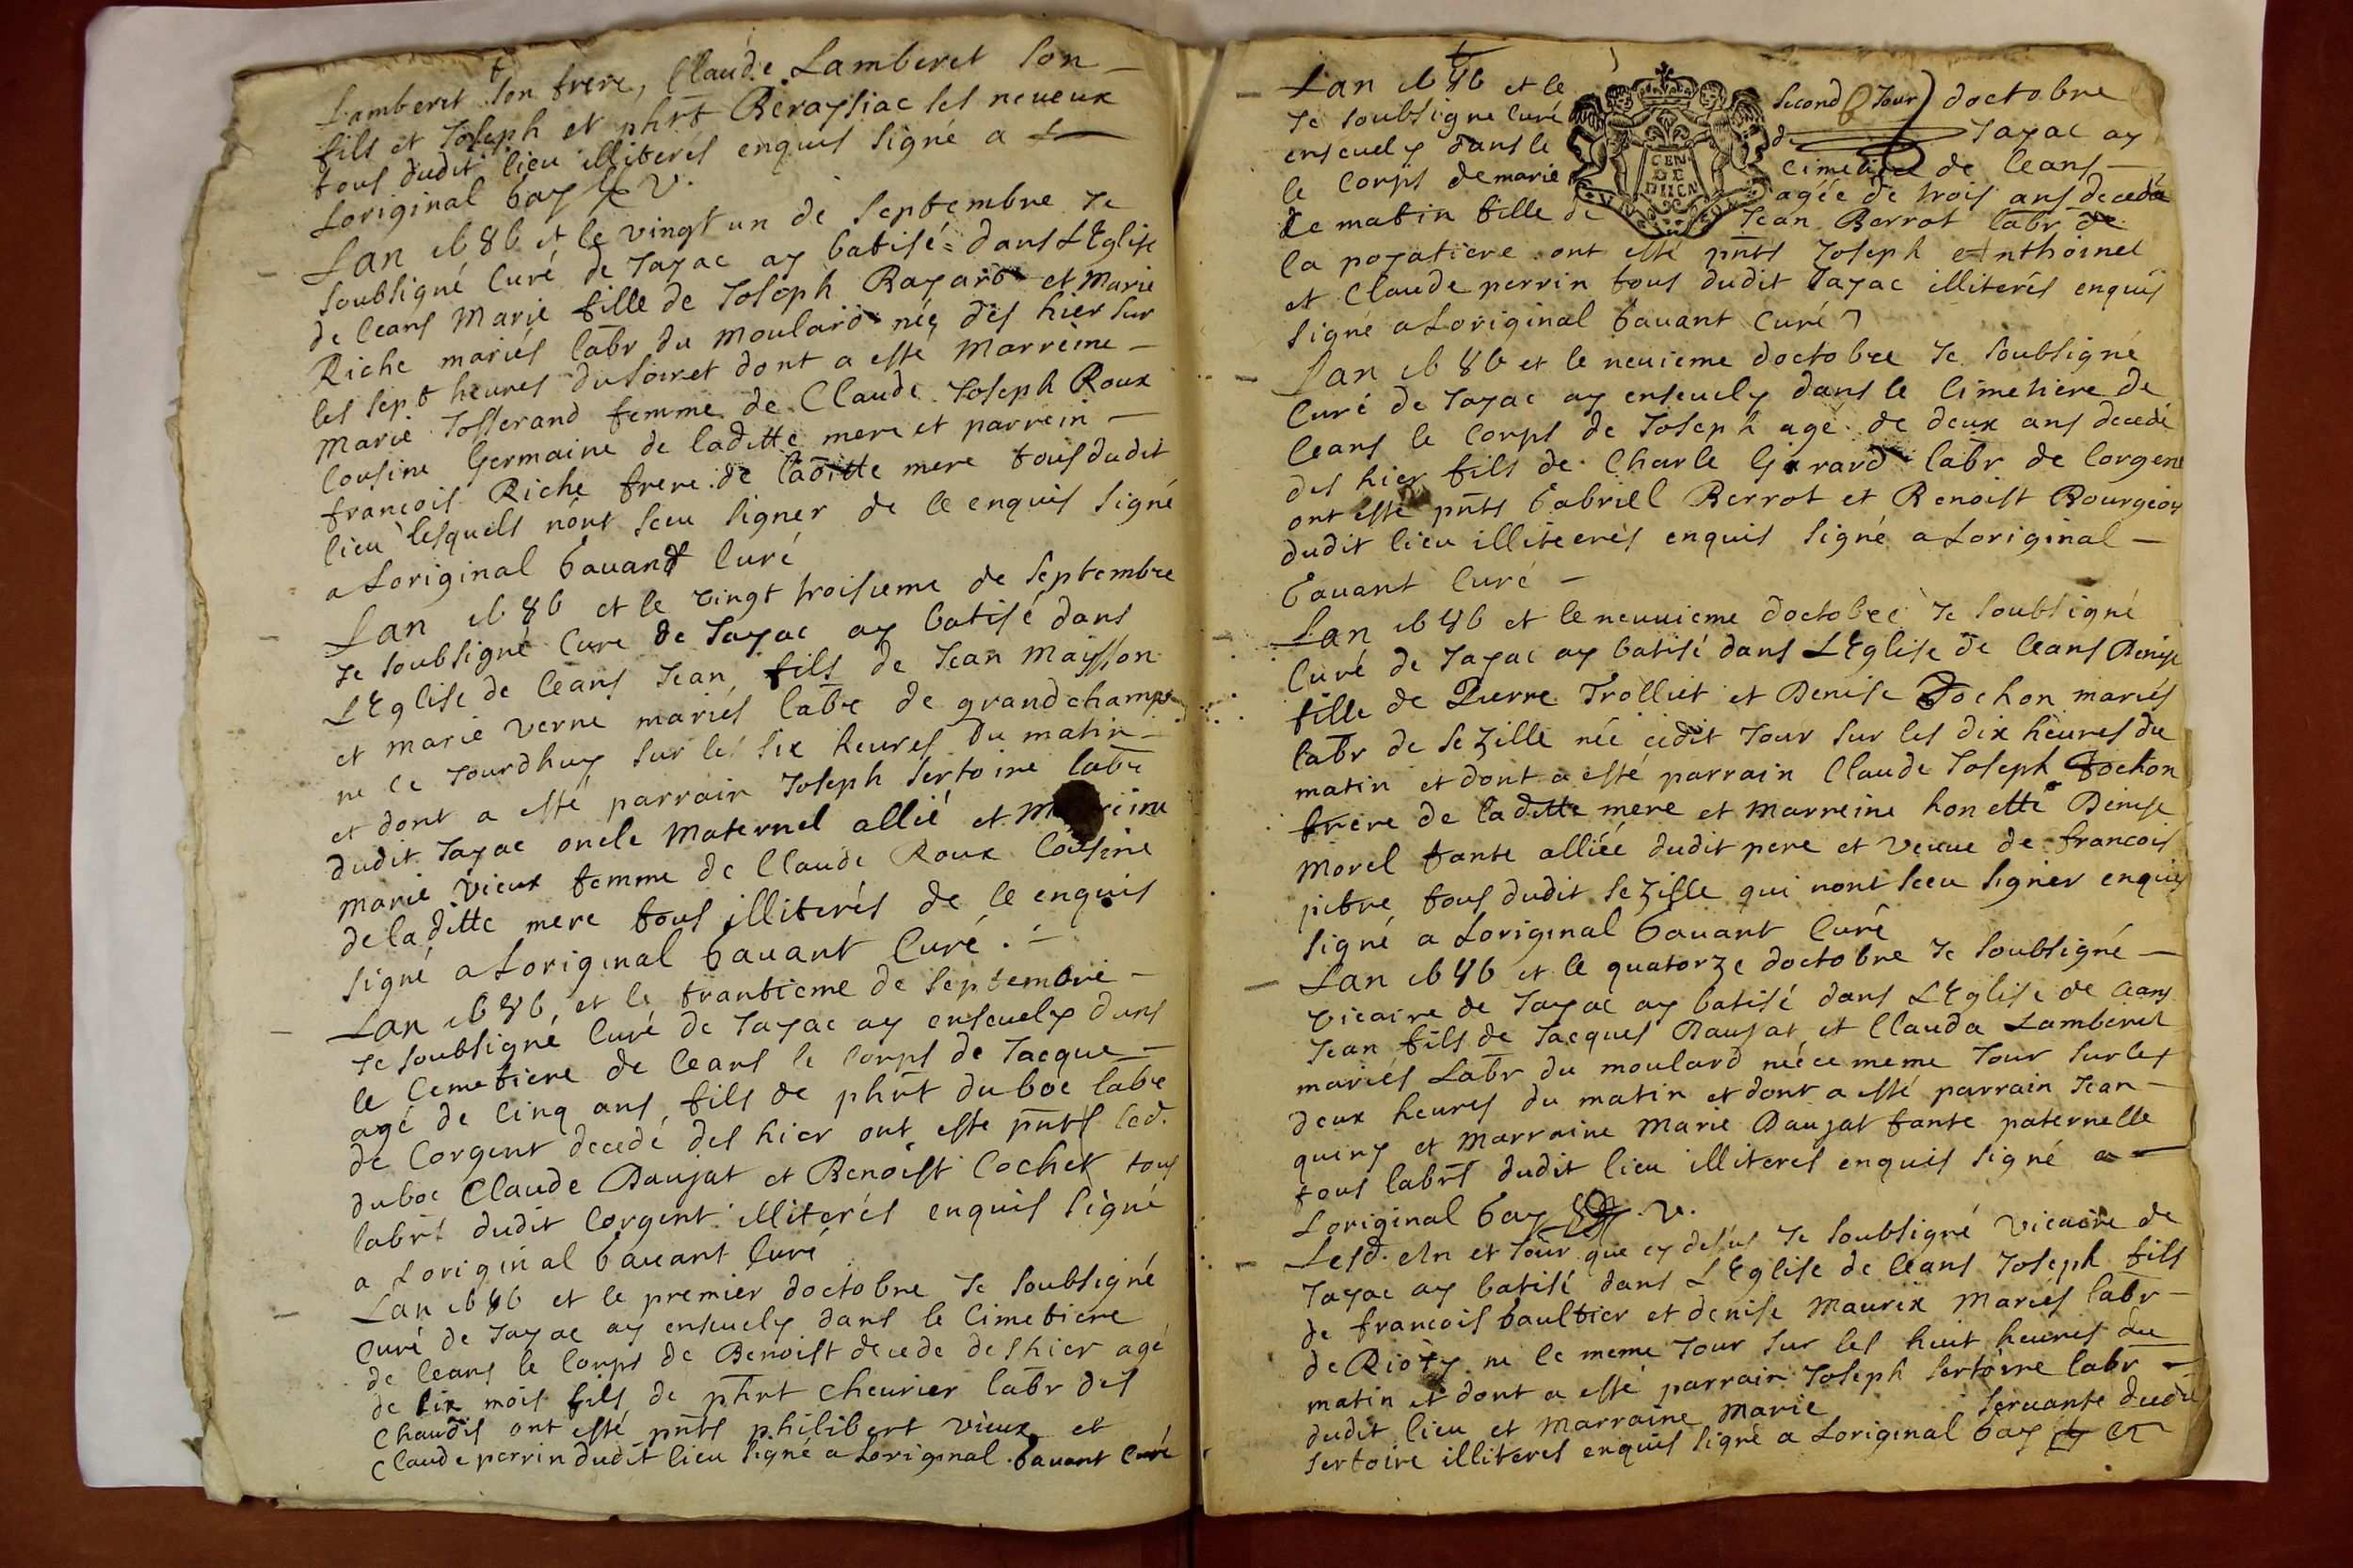 Lamberet son frere, Claude Lamberet son
fils et Joseph et phrt Beraysiac ses neueux
tous dudit lieu illiterés enquis signé a
Loriginal bay V.
Lan 1686 et le vingt un de septembre Je
soubsigné Curé de Jayac ay batisé dans LEglise
de ceans Marie fille de Joseph Rayard et Marie
Riche mariés labr du moulard née des hier sur
les sept heures du soir et dont a esté Marreine
Marie Josserand femme de Claude Joseph Roux
Cousine Germaine de laditte mere et parrein
francois Riche frere de laditte mere tous dudit
lieu lesquels nont sceu signer de ce enquis signé
a Loriginal bauant Curé
Lan 1686 et le vingt troisieme de septembre
Je soubsigné Curé de Jayac ay batisé dans
LEglise de ceans Jean fils de Jean Maysson
et marie verne mariés labr de grandchamps
ne ce Jourdhuy sur les six heures du matin
et dont a esté parrain Joseph sertoire labr
dudit Jayac oncle Maternel allié et
marie vieux femme de Claude Roux Cousine
de laditte mere tous illiterés de ce enquis
signé a Loriginal bauant Curé.
Lan 1686, et le trantieme de septembre
Je soubsigné Curé de Jayac ay enseuely dans
le Cemetiere de ceans le corps de Jacque
agé de cinq ans, fils de phrt duboc labr
de Corgent decedé des hier ont esté pnts led.
duboc Claude Daujat et Benoist Cochet tous
labrs dudit Corgent illiterés enquis signé
a Loriginal bauant Curé
Lan 1686 et le premier doctobre Je soubsigné
Curé de Jayac ay enseuely dans le Cimetiere
de ceans le corps de Benoist decede des hier agé
de six mois fils de phrt cheurier labr des
Chaudis ont esté pnts philibert vieux et
Claude perrin dudit lieu signé a Loriginal bauant Curé
Lan 1686 et le second Jour doctobre
Je soubsigne Curé de Jayac ay
enseuely dans le Cimetiere de ceans
le corps de marie agée de trois ans decedé
ce matin fille de Jean Berrot labr de
la poyatiere ont esté pnts Joseph Anthoinet
et Claude perrin tous dudit Jayac illiterés enquis
signé a Loriginal bauant Curé
Lan 1686 et le neuieme doctobre Je soubsigné
Curé de Jayac ay enseuely dans le Cimetiere de
ceans le corps de Joseph agé de deux ans decedé
des hier fils de Charle Girard labr de Corgent
ont esté pnts Gabriell Berrot et Benoist Bourgeois
dudit lieu illiterés enquis signé a Loriginal
bauant Curé
Lan 1686 et le neuuieme doctobre Je soubsigné
Curé de Jayac ay batisé dans LEglise de ceans Denise
fille de Pierre Trolliet et Denise Jochon mariés
labr de sezille née cedit Jour sur les dix heures du
matin et dont a esté parrain Claude Joseph Jochon
frere de laditte mere et marreine honette Denise
Morel tante alliée dudit pere et veuue de francois
pitre tous dudit sezille qui nont sceu signer enquis
signé a Loriginal bauant Curé
Lan 1686 et le quatorze doctobre Je soubsigné
vicaire de Jayac ay batisé dans LEglise de ceans
Jean fils de Jacques Daujat et Clauda Lamberet
mariés Labr du moulard né ce meme Jour sur les
deux heures du matin et dont a esté parrain Jean
quiny et Marraine Marie Daujat tante paternelle
tous labrs dudit lieu illiteres enquis signé a
Loriginal bay V.
Lesd. An et Jour que cy desus Je soubsigné vicaire de
Jayac ay batisé dans LEglise de ceans Joseph fils
de francois baultier et denise Maurix Mariés labr
de Rioty ne le meme Jour sur les huit heures du
matin et dont a esté parrain Joseph sertoire labr
dudit lieu et Marraine Marie seruante dudit
sertoire illiteres enquis signé a Loriginal bay